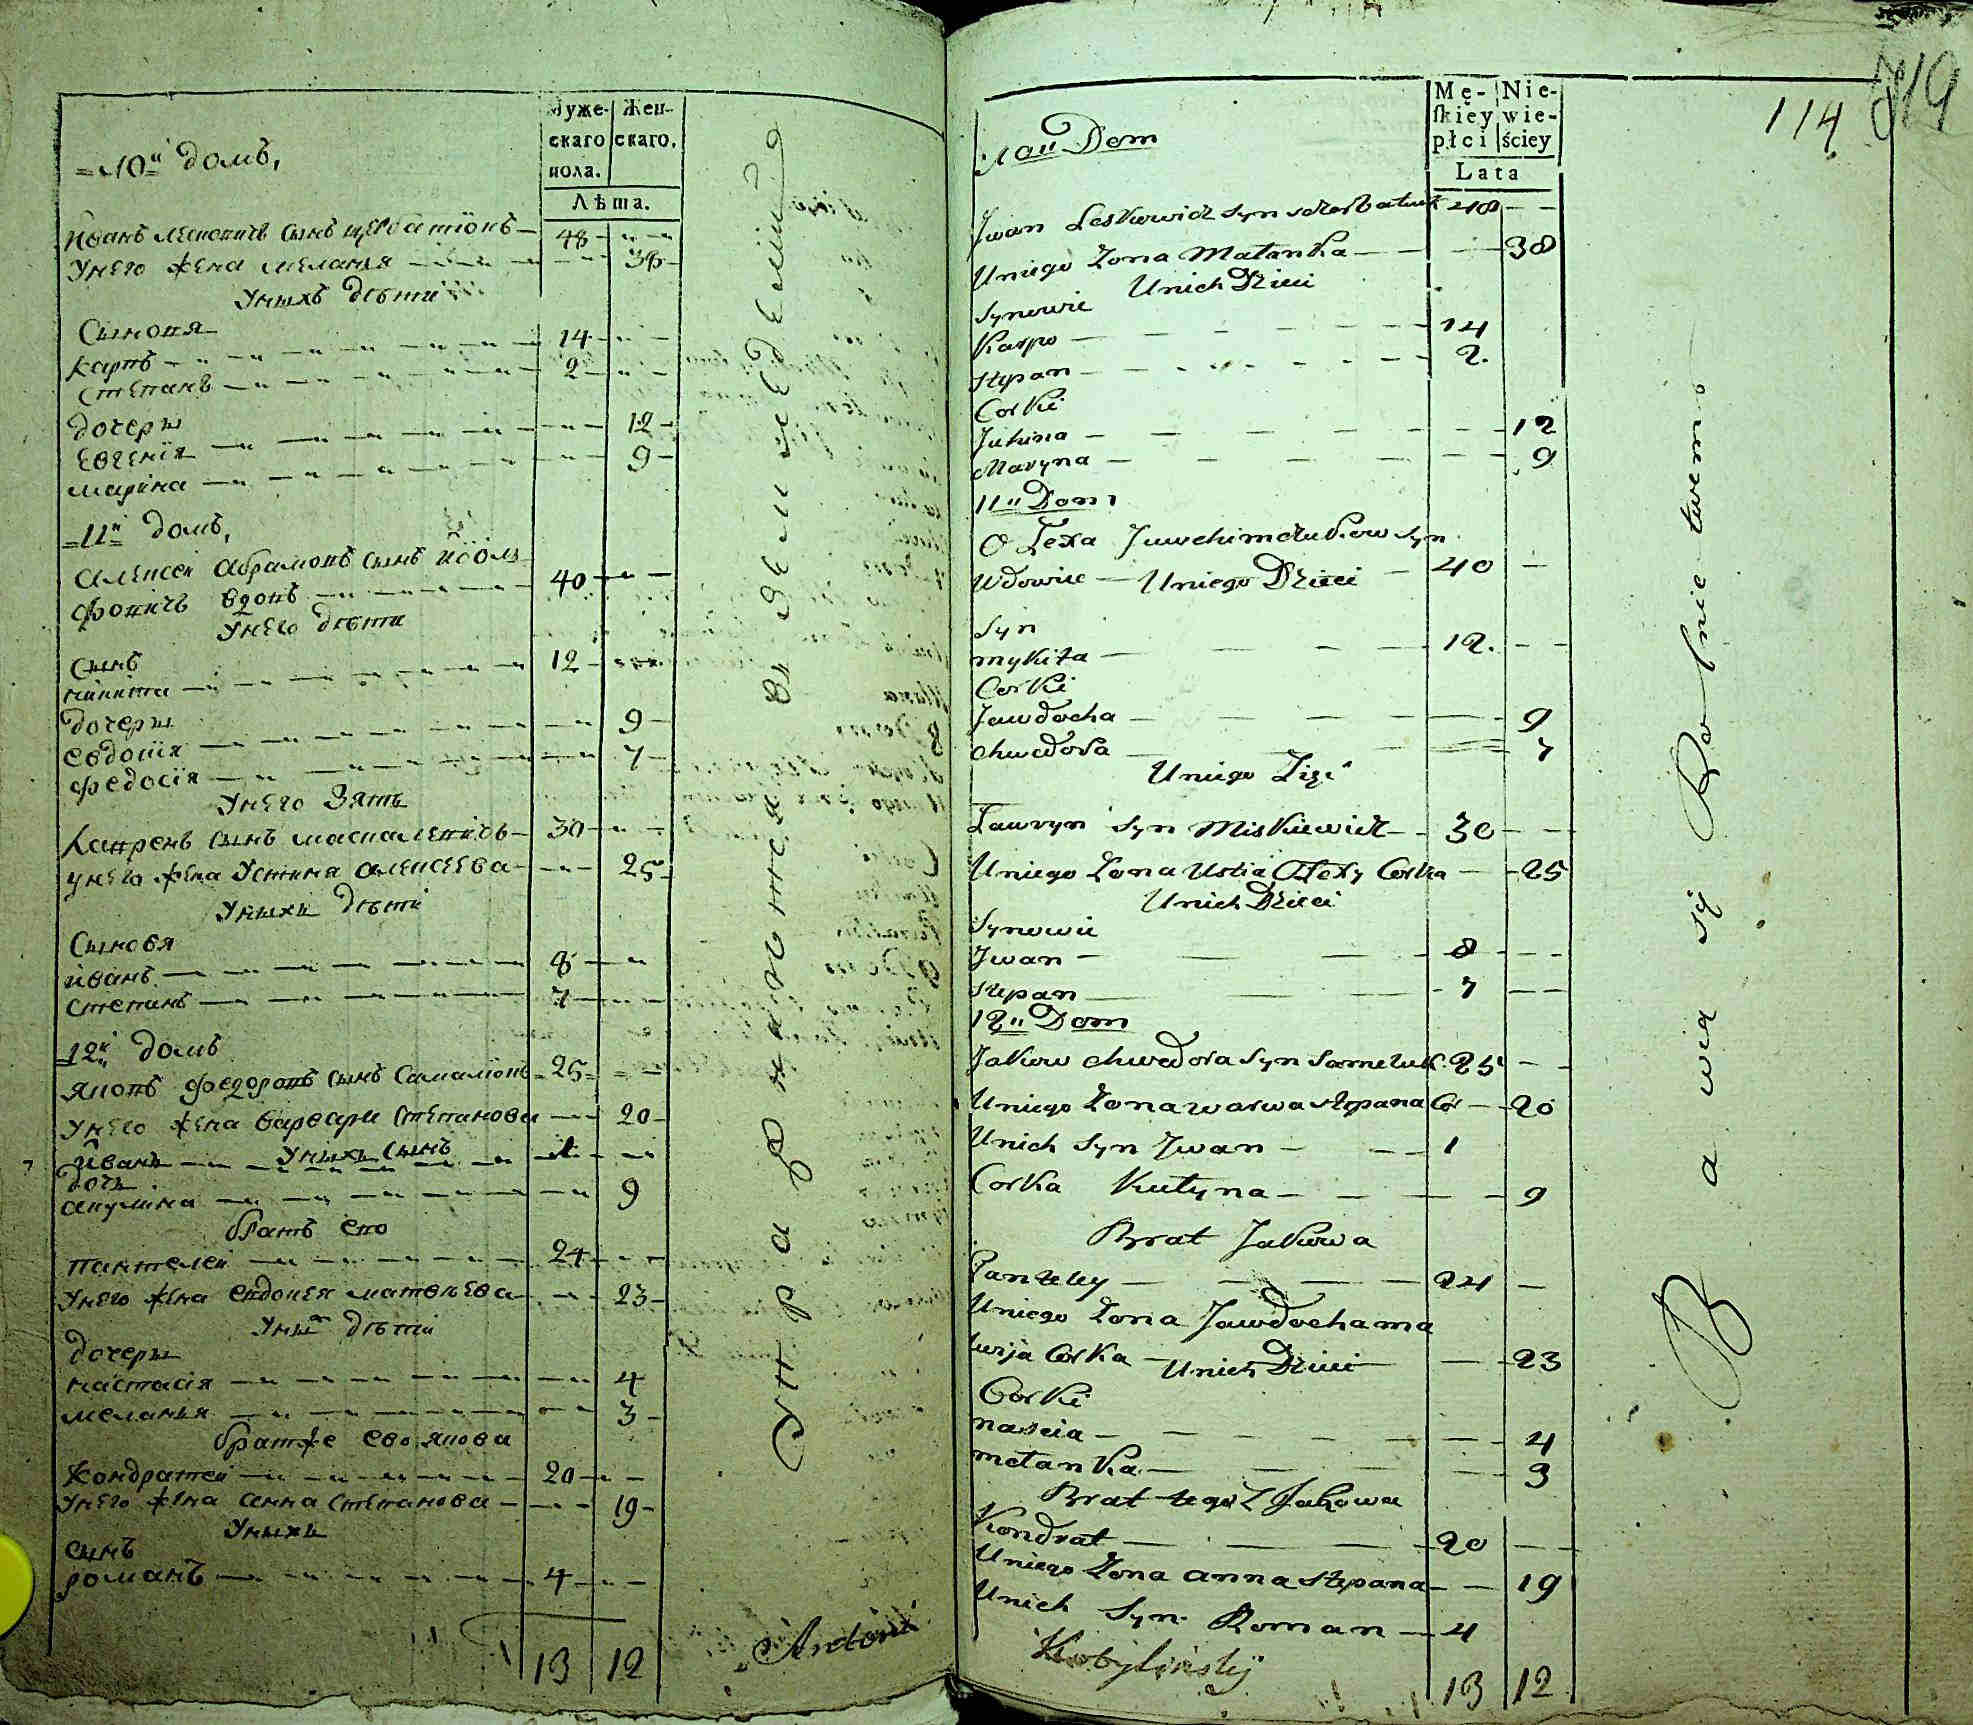 Муже-
скаго
пола.
Жен-
скаго.
Лѣта.
10й домъ,
Иванъ сынъ 48
Унего жена меланья 38
Унихъ дѣти
Сыновя
Карпъ 14
Степанъ 2
дочеры
Евгенія 12
марина 9
11й домъ,
Алексей Абрамовъ сынъ
вдовъ 40
Унего дѣти
Сынъ
никита 12
дочеры
Евдокія 9
федосія 7
Унего Зять
Лавренъ сынъ 30
унего жена Устиня алексеева 25
Унихъ дѣти
Сыновя
иванъ 8
степанъ 7
12й домъ
Яковъ федоровъ сынъ 25
Унего жена варвара степанова 20
Унихъ Сынъ
Иванъ 1
дочь
акулина 9
братъ его
пантелей 24
Унего жена евдокея матвеева 23
Унихъ дѣти
дочеры
настасія 4
меланья 3
братже его якова
Кондратей 20
Унего жена анна степанова 19
Унихъ
сынъ
романъ 4
13 12
Antoni
114
719
Mę-
ſkiey
płci
Nie-
wie-
ściey
Lata
10 Dom
Jwan Leskowicz syn 48
Uniego Zona Małanka 38
Unich Dzieci
Synowie
Karpo 14
Stepan 2.
Corki
Juhina 12
Maryna 9
11 Dom
Olexa syn
Wdowiec Uniego Dzieci 40
Syn
mykita 12.
Corki
Jawdocha 9
chwedora 7
Uniego Zięć
Ławryn syn Miskiewicz 30
Uniego Zona Ustia Olexy Corka 25
Unich Dzieci
Synowie
Jwan 8
Stepan 7
12 Dom
Jakow chwedora syn 25
Uniego Zona warwa Stepana Cor 20
Unich syn Jwan 1
Corka Kulyna 9
Brat Jakowa
Panteley 24
Uniego Zona Jawdocha ma
twija Corka Unich Dzieci 23
Corki
nascia 4
melanka 3
Brat tegoż Jakowa
Kondrat 20
Uniego Zona anna Stepana 19
Unich Syn Roman 4
Kobylinsky
13 12